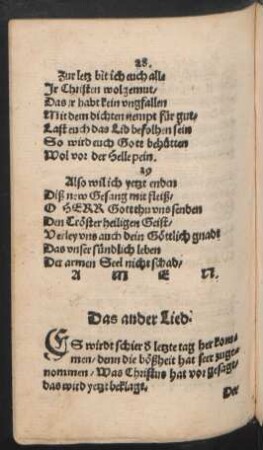 28.
Zur letz bit ich euch all/
Ir Christen wolgemut/
Das ir habt kein ungfallen
Mit dem dichten nempt für gut/
Last euch das Lid befolhen sein
So wird euch Gott behütten
Wol vor der Helle pein.
29
Also wil ich yetzt enden
Diß new Gesang mit fleiß/
O HERR Gott thu uns senden
Den Tröster heiligen Geist/
Verley uns auch dein Göttlich gnad
Das unser sündlich leben
Der armen Seel nicht schad/
A M E N.
Das ander Lied.
ES wirdt schier 8 letzte tag her kom-
men/ denn die bößheit hat seer zuge-
nommen/ Was Christus hat vor gesagt/
das wird yetzt beklagt.
Der